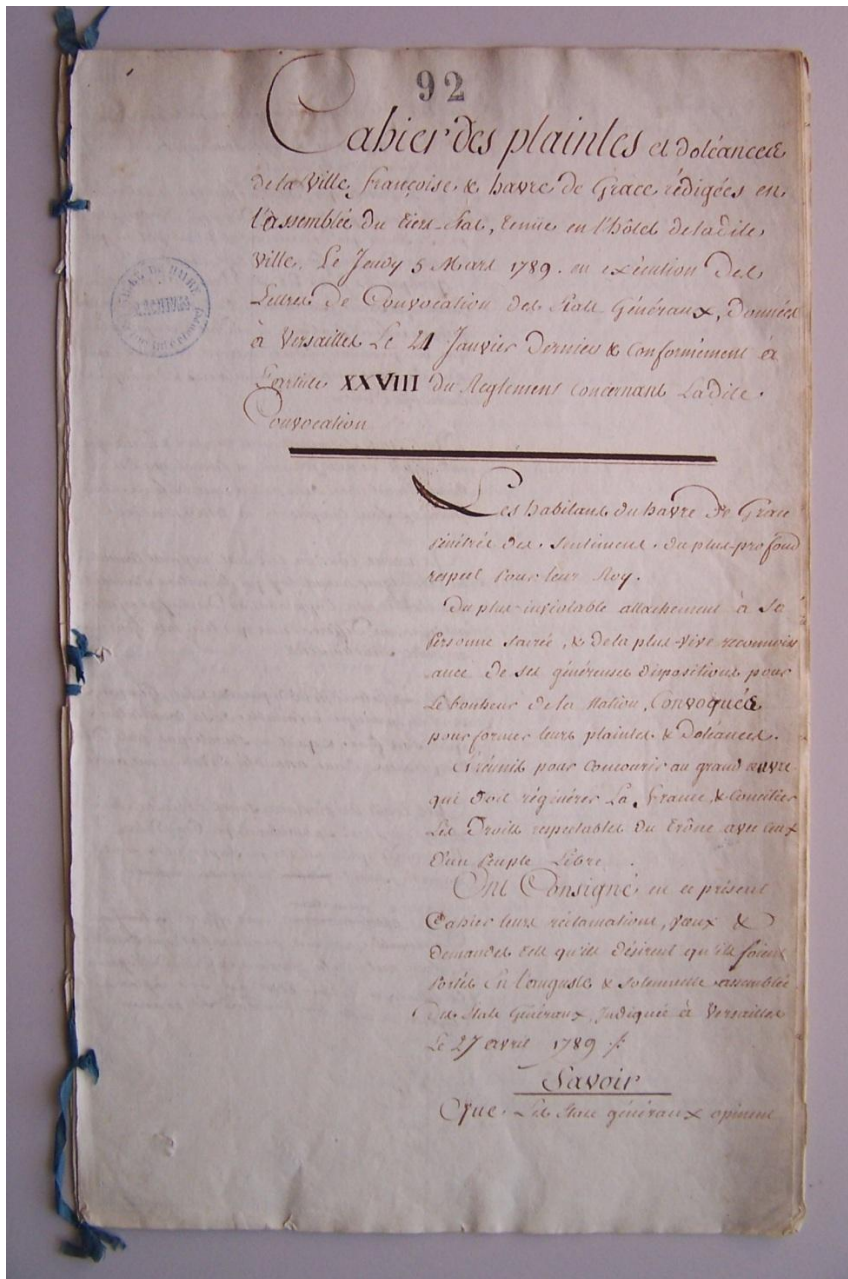 92
Cahier des plaintes et doléances
de la Ville françoise & havre de Grace rédigées en
l'assemblée du tiers-Etat, tenüe en l'hôtel de ladite
Ville, Le Jeudy 5 Mars 1789. en exécution des
Lettres de Convocation des Etats Généraux, données
à Versailles Le 24 Janvier dernier & conformément à
L'article XXVIII du Reglement concernant Ladite
Convocation
Les habitans du havre de Grace
pénétrés des sentimens du plus profond
respect pour leur Roy.
Du plus inviolable attachement à Sa
Personne sacrée, & de la plus vive reconnois
ance de ses généreuses dispositions pour
Le bonheur de la Nation, Convoqués
pour former leurs plaintes & doléances.
Et réunis pour concourir au grand œuvre
qui doit régénérer La france, & concilier
Les Droits respectables du trône avec ceux
d'un Peuple Libre.
Ont Consigné en ce présent
Cahier leurs réclamations, vœux &
demandes tels qu'ils désirent qu'ils soient
portés En l'auguste & solemnelle assemblée
des Etats Généraux, Indiquée à Versailles
Le 27 avril 1789
Savoir
Que Les Etats généraux opinent